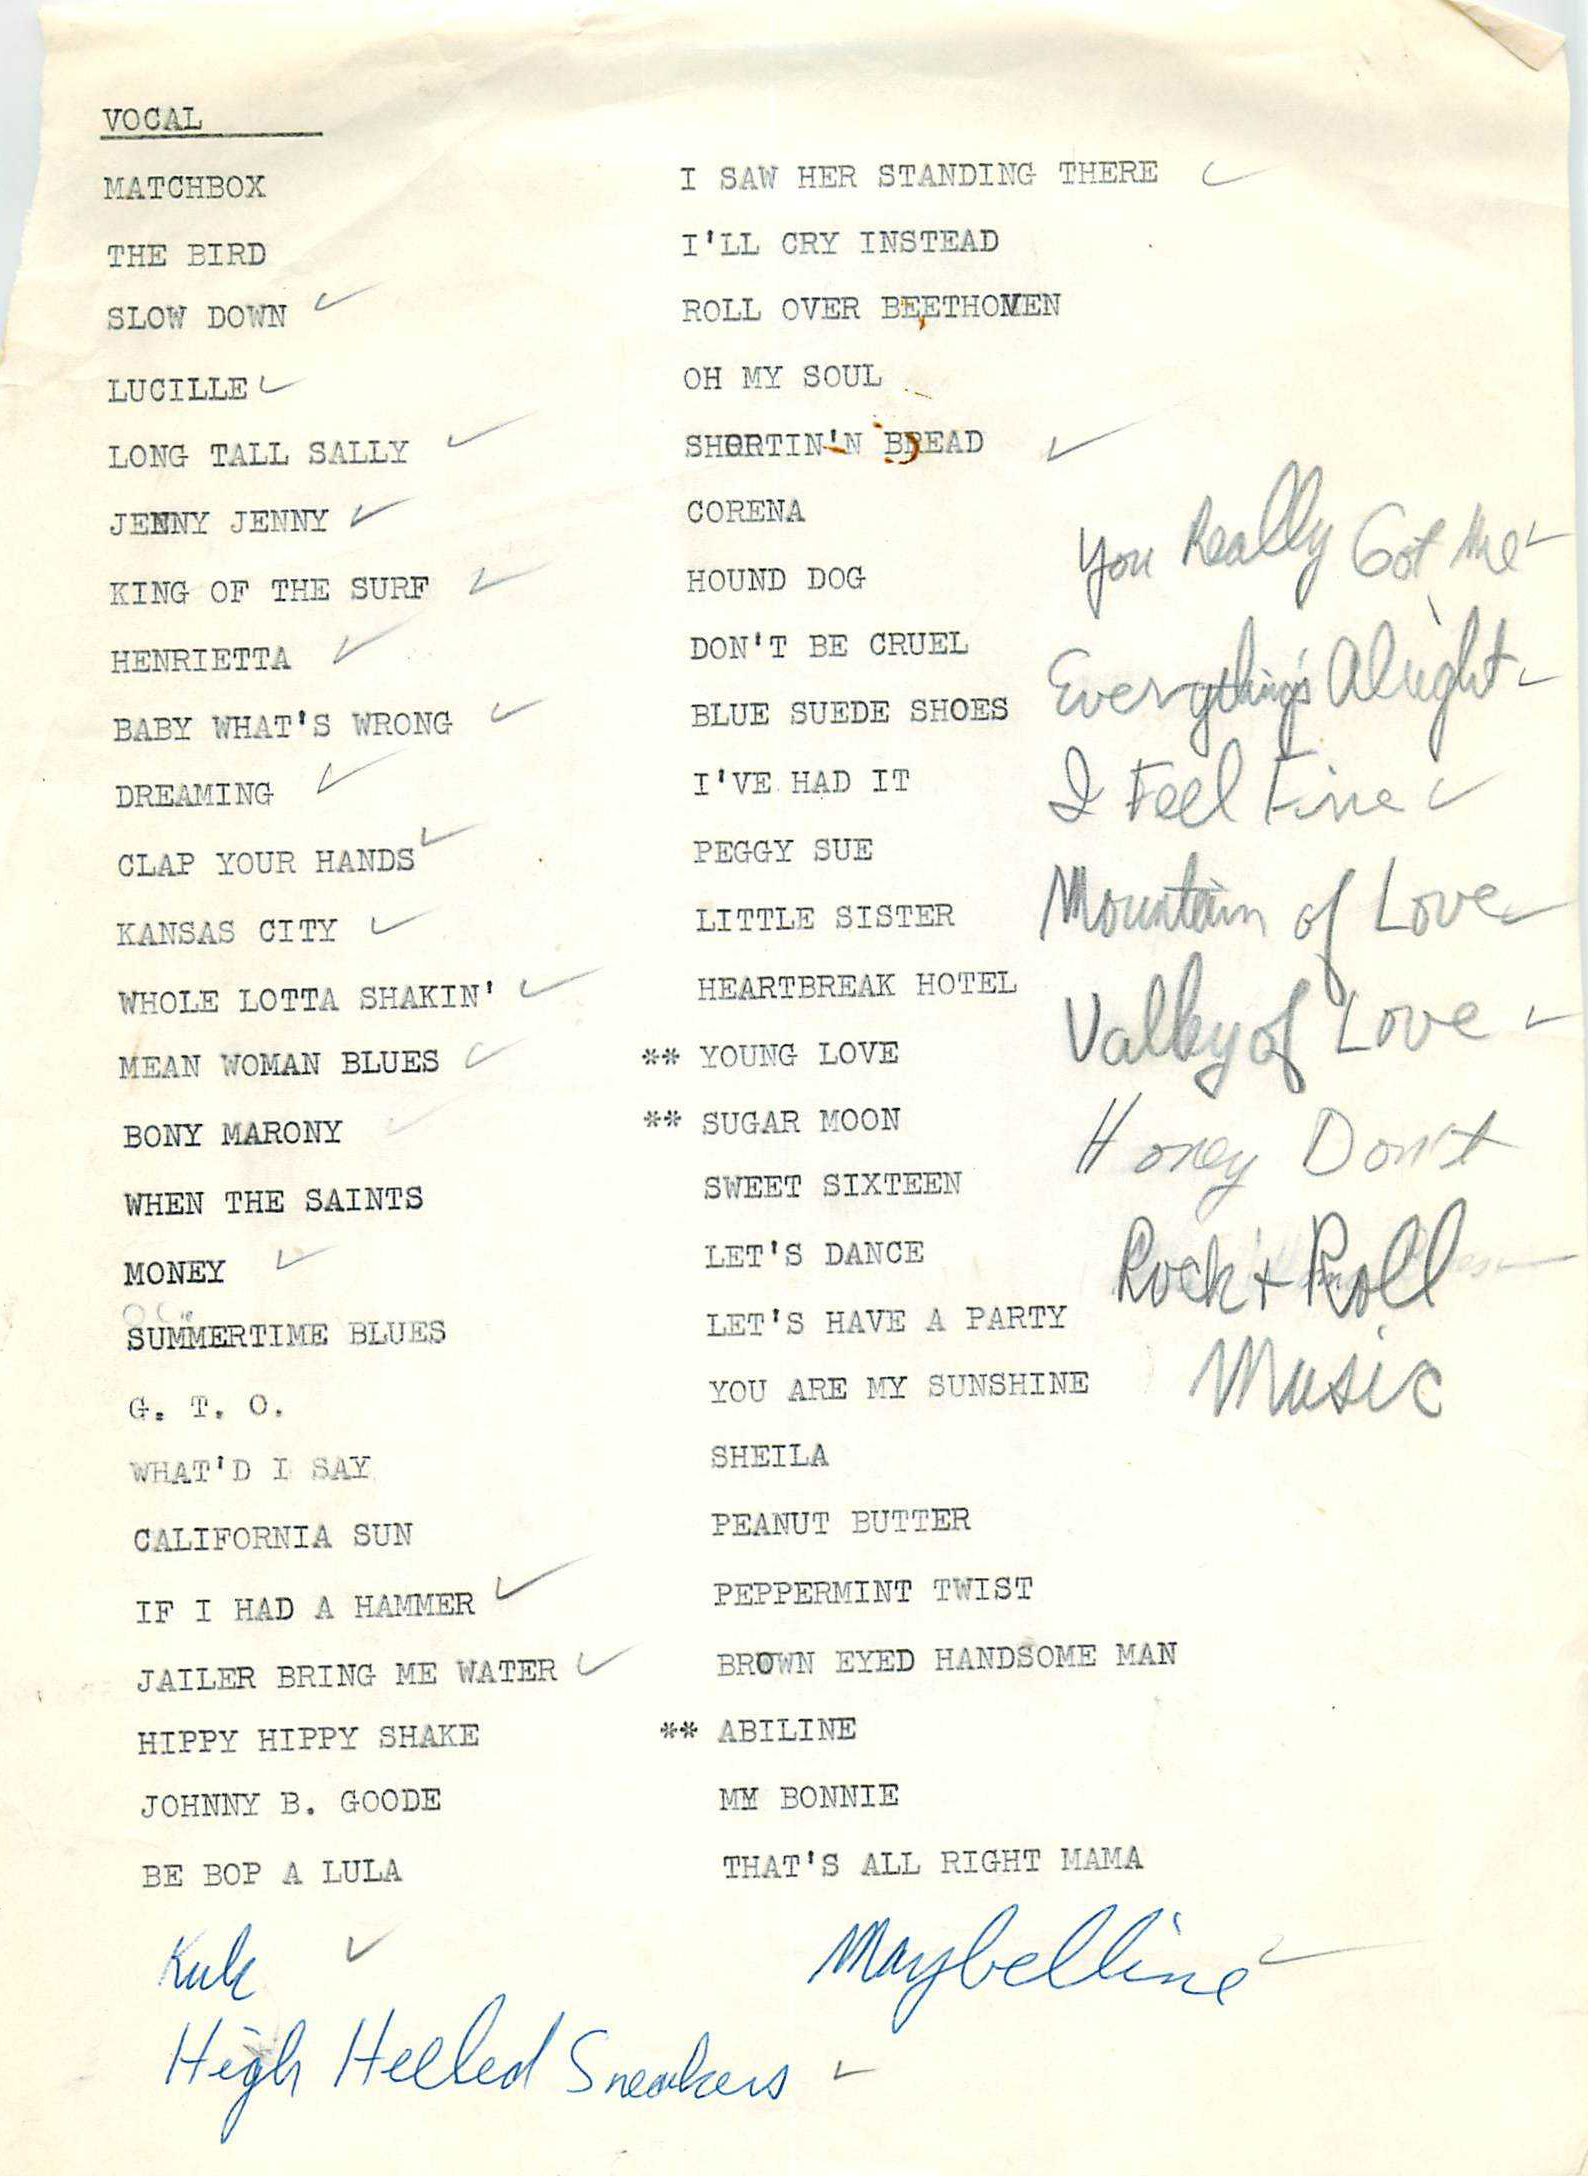 VOCAL
MATCHBOX
THE BIRD
SLOW DOWN ✓
LUCILLE ✓
LONG TALL SALLY ✓
JENNY JENNY ✓
KING OF THE SURF ✓
HENRIETTA ✓
BABY WHAT'S WRONG ✓
DREAMING ✓
CLAP YOUR HANDS ✓
KANSAS CITY ✓
WHOLE LOTTA SHAKIN' ✓
MEAN WOMAN BLUES ✓
BONY MARONY ✓
WHEN THE SAINTS
MONEY ✓
SUMMERTIME BLUES
G. T. O.
WHAT'D I SAY
CALIFORNIA SUN
IF I HAD A HAMMER ✓
JAILER BRING ME WATER ✓
HIPPY HIPPY SHAKE
JOHNNY B. GOODE
BE BOP A LULA
✓
High Heeled Sneakers ✓
I SAW HER STANDING THERE ✓
I'LL CRY INSTEAD
ROLL OVER BEETHOVEN
OH MY SOUL
SHORTIN'N BREAD ✓
CORENA
HOUND DOG
DON'T BE CRUEL
BLUE SUEDE SHOES
I'VE HAD IT
PEGGY SUE
LITTLE SISTER
HEARTBREAK HOTEL
** YOUNG LOVE
** SUGAR MOON
SWEET SIXTEEN
LET'S DANCE
LET'S HAVE A PARTY
YOU ARE MY SUNSHINE
SHEILA
PEANUT BUTTER
PEPPERMINT TWIST
BROWN EYED HANDSOME MAN
** ABILINE
MY BONNIE
THAT'S ALL RIGHT MAMA
Maybelline ✓
You Really Got Me ✓
Everything's Alright ✓
I Feel Fine ✓
Mountain of Love ✓
Valley of Love ✓
Honey Don't
Rock + Roll
Music